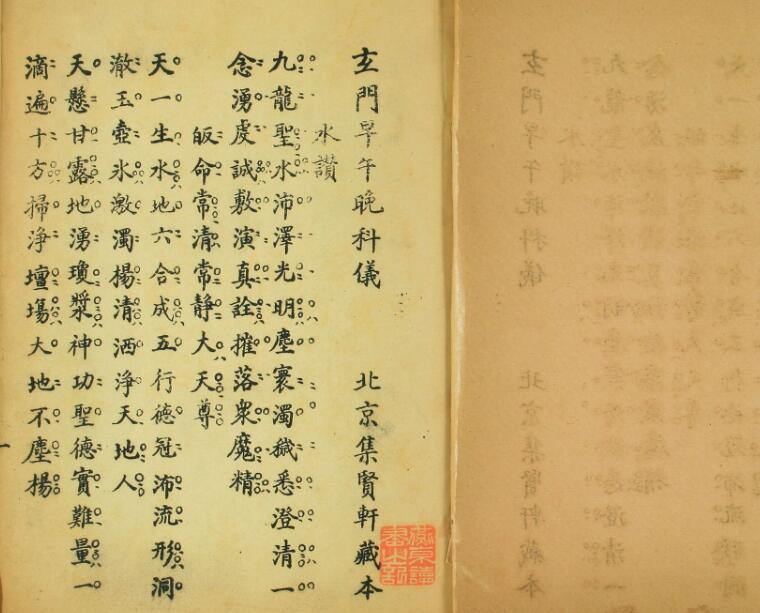 玄門早午晚科儀 北京集賢軒藏本
水讚
九龍聖水沛澤光明塵寰濁穢悉澄清一
念湧虔誠敷演真詮摧落衆魔精
皈命常清常静大天尊
天一生水地六合成五行德冠沛流形洞
澈玉壺氷激濁楊清洒淨天地人
天懸甘露地湧瓊漿神功聖德實難量一
滴遍十方掃淨壇塲大地不塵楊
一